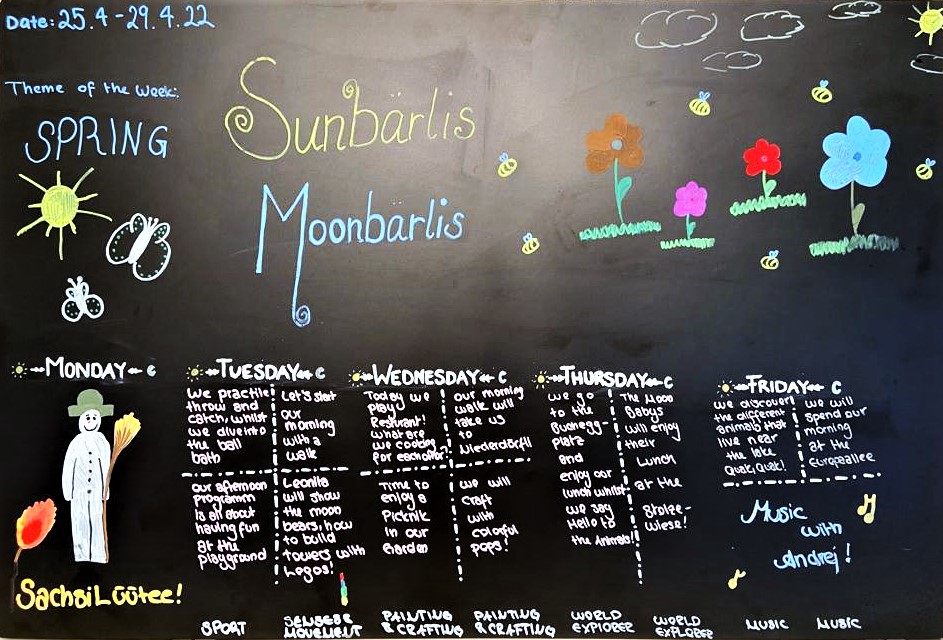 Date: 25.4 - 29.4.22
Theme of the Week:
SPRING
Sunbärlis
Moonbärlis
MONDAY
SachsiLüütee!
TUESDAY
we practise
throw and
catch, whilst
we dive into
the ball
bath
Let's start
our
morning
with a
walk
our afternoon
programm
is all about
having fun
at the
playground
Leonita
will show
the moon
bears, how
to build
towers with
Legos!
WEDNESDAY
Today we
play
Resturant!
what are
we cooking
for each other?
our morning
walk will
take us
to
Niederdörfli
Time to
enjoy a
Picknik
in our
Garden
we will
craft
with
colorful
paps!
THURSDAY
we go
to the
platz
and
enjoy our
lunch whilst
we say
Hello to
the Animals!
The Moon
Babys
will enjoy
their
Lunch
at the
wiese!
FRIDAY
we discover
the different
animals that
live near
the lake
Quak, Quak!
we will
spend our
morning
at the
Europaallee
Music
with
Andrej!
SPORT
SENSE &
MOVEMENT
PAINTING
& CRAFTING
PAINTING
& CRAFTING
WORLD
EXPLORER
WORLD
EXPLORER
MUSIC
MUSIC